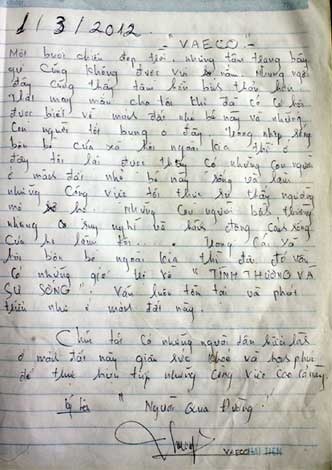 1/3/2012.
"VAECO"
Một buổi chiều đẹp trời, những tâm trạng bây
giờ cũng không được vui nắm. Nhưng ngồi
đây cũng thấy tâm hồn bớt thẩn hơn
Thật may mắn cho tôi khi đã có cơ hội
được biết về mảnh đất nhỏ bé này và những
con người tôi ở đây. Trong nhịp sống
bôn ba của xã hội ngoài kia thì ở
đây tôi lại được thấy có những con người
ở mảnh đất nhỏ bé này sống và làm
những công việc tôi thực sự thấy ngưỡng
mộ họ. những con người bình thường
nhưng suy nghĩ và hành động cao sống
của họ làm tôi ..... Trong cái xã
hội bôn bề ngoài kia thì đâu đó vẫn
có những giá trị về "TÌNH THƯƠNG VÀ
SỰ SỐNG" Vẫn luôn tồn tại và phát
triển như ở mảnh đất này.
Chúc tất cả những người dân
ở mảnh đất này giàu sức khỏe và hạnh phúc
để thực hiện tiếp những công việc cao cả này.
Ký tên
"Người Qua Đường"
VAECO